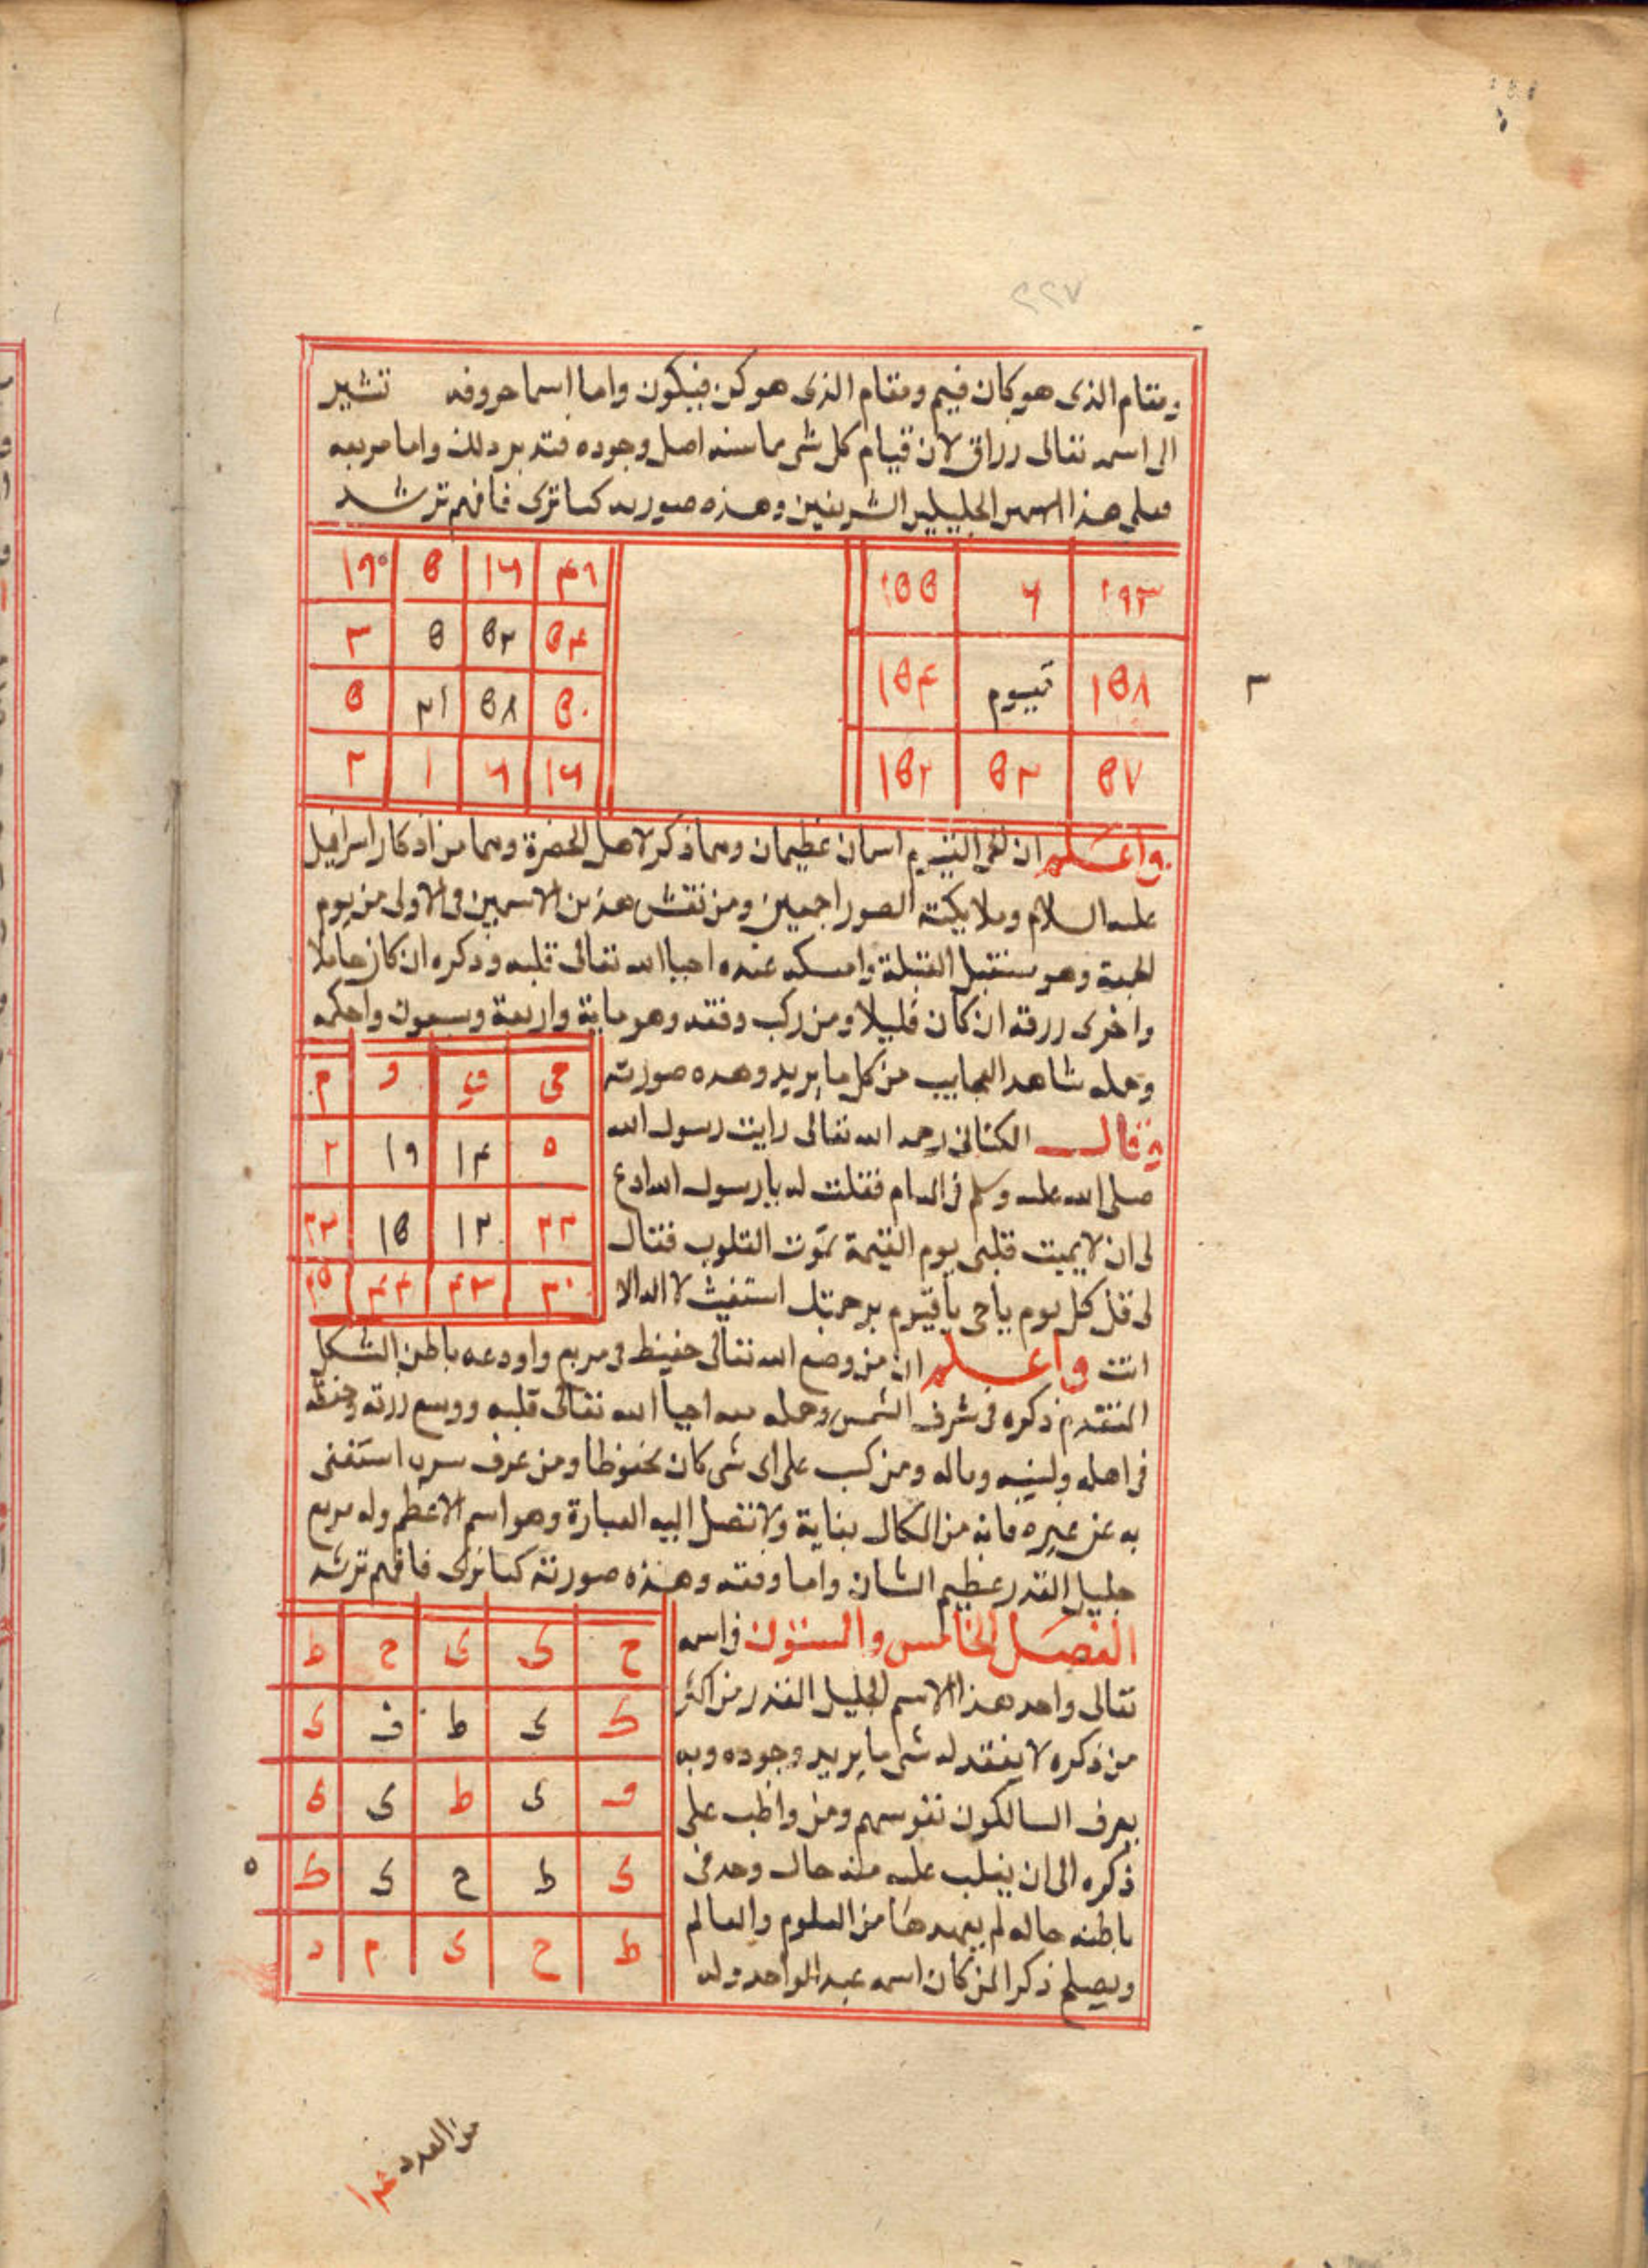 ٢٢٧
ومقام الذى هو كان فيم ومقام الذى هو كن فيكون واما اسما حروفه تشير
الى اسمه تعالى رزاق لان قيام كل شى ما سنه اصل وجوده فتدبر ذلك واما مربعه
فعلى هذا الجليلين الشريفين وهذه صورته كما ترى فافهم ترشد
١٩٣ ٦ ١٥٥
١٥٨ قيوم ١٥٤
٥٧ ٥٣ ١٥٢
٤٦ ١٦ ٥ ١٩٠
٥٤ ٥٢ ٥ ٣
٥٠ ٥٨ ٢١ ٥
١٦ ٦ ١ ٢
٣
واعلم ان الحى القيوم اسمان عظيمان وهما ذكر لاهل الحضرة وهما من اذكار اسرافيل
عليه السلام وملايكته الصور اجمعين ومن نقش هذين الاسمين فى الاولى من يوم
الجمعة وهو مستقبل القبلة وامسكه عنده احيا الله تعالى قلبه وذكره ان كان حاملا
واجرى رزقه ان كان قليلا ومن ركب وفقه وهو ماية واربعة وسبعون واحكمه
وحمله شاهد العجايب من كل ما يريد وهذه صورته
حى ق و م
٥ ١٤ ١٩ ٢
٢٢ ١٢ ١٥ ٢٣
٣٠ ٤٣ ٤٤ ٢٥
وقال الكتانى رحمه الله تعالى رايت رسول الله
صلى الله عليه وسلم فى المنام فقلت له يا رسول الله ادع
لى ان لا يميت قلبى يوم القيمة تموت القلوب فقال
لى قل كل يوم يا حى يا قيوم برحمتك استغيث لا اله الا
انت واعلم ان من وضع الله تعالى حفيظ فى مربع واودعه باطن الشكل
المتقدم ذكره فى شرف الشمس وحمله معه احيا الله تعالى قلبه ووسع رزقه وحفظه
فى اهله وبنيه وماله ومن كتب على اى شى كان محفوظا ومن عرف سره استغنى
به عن غيره فانه من الكمال بغاية ولا تتصل اليه العبارة وهو اسم الاعظم وله مربع
جليل القدر عظيم الشان واما وفقه وهذه صورته كما ترى فافهم ترشد
ح ى ى ح ط
ط ى ط ف ى
ف ى ط ى ى
ى ط ح ى ط
ط ح ى م د
٥
الفصل الخامس والستون فى اسمه
تعالى واحد هذا الاسم الجليل القدر من اكثر
من ذكره لا يفقد له شى ما يريد وجوده وبه
يعرف السالكون نفوسهم ومن واظب على
ذكره الى ان يغلب عليه منه حال وجد فى
باطنه حاله لم يعهدها من العلوم والعالم
ويصلح ذكرا لمن كان اسمه عبد الواحد وله
من العدد